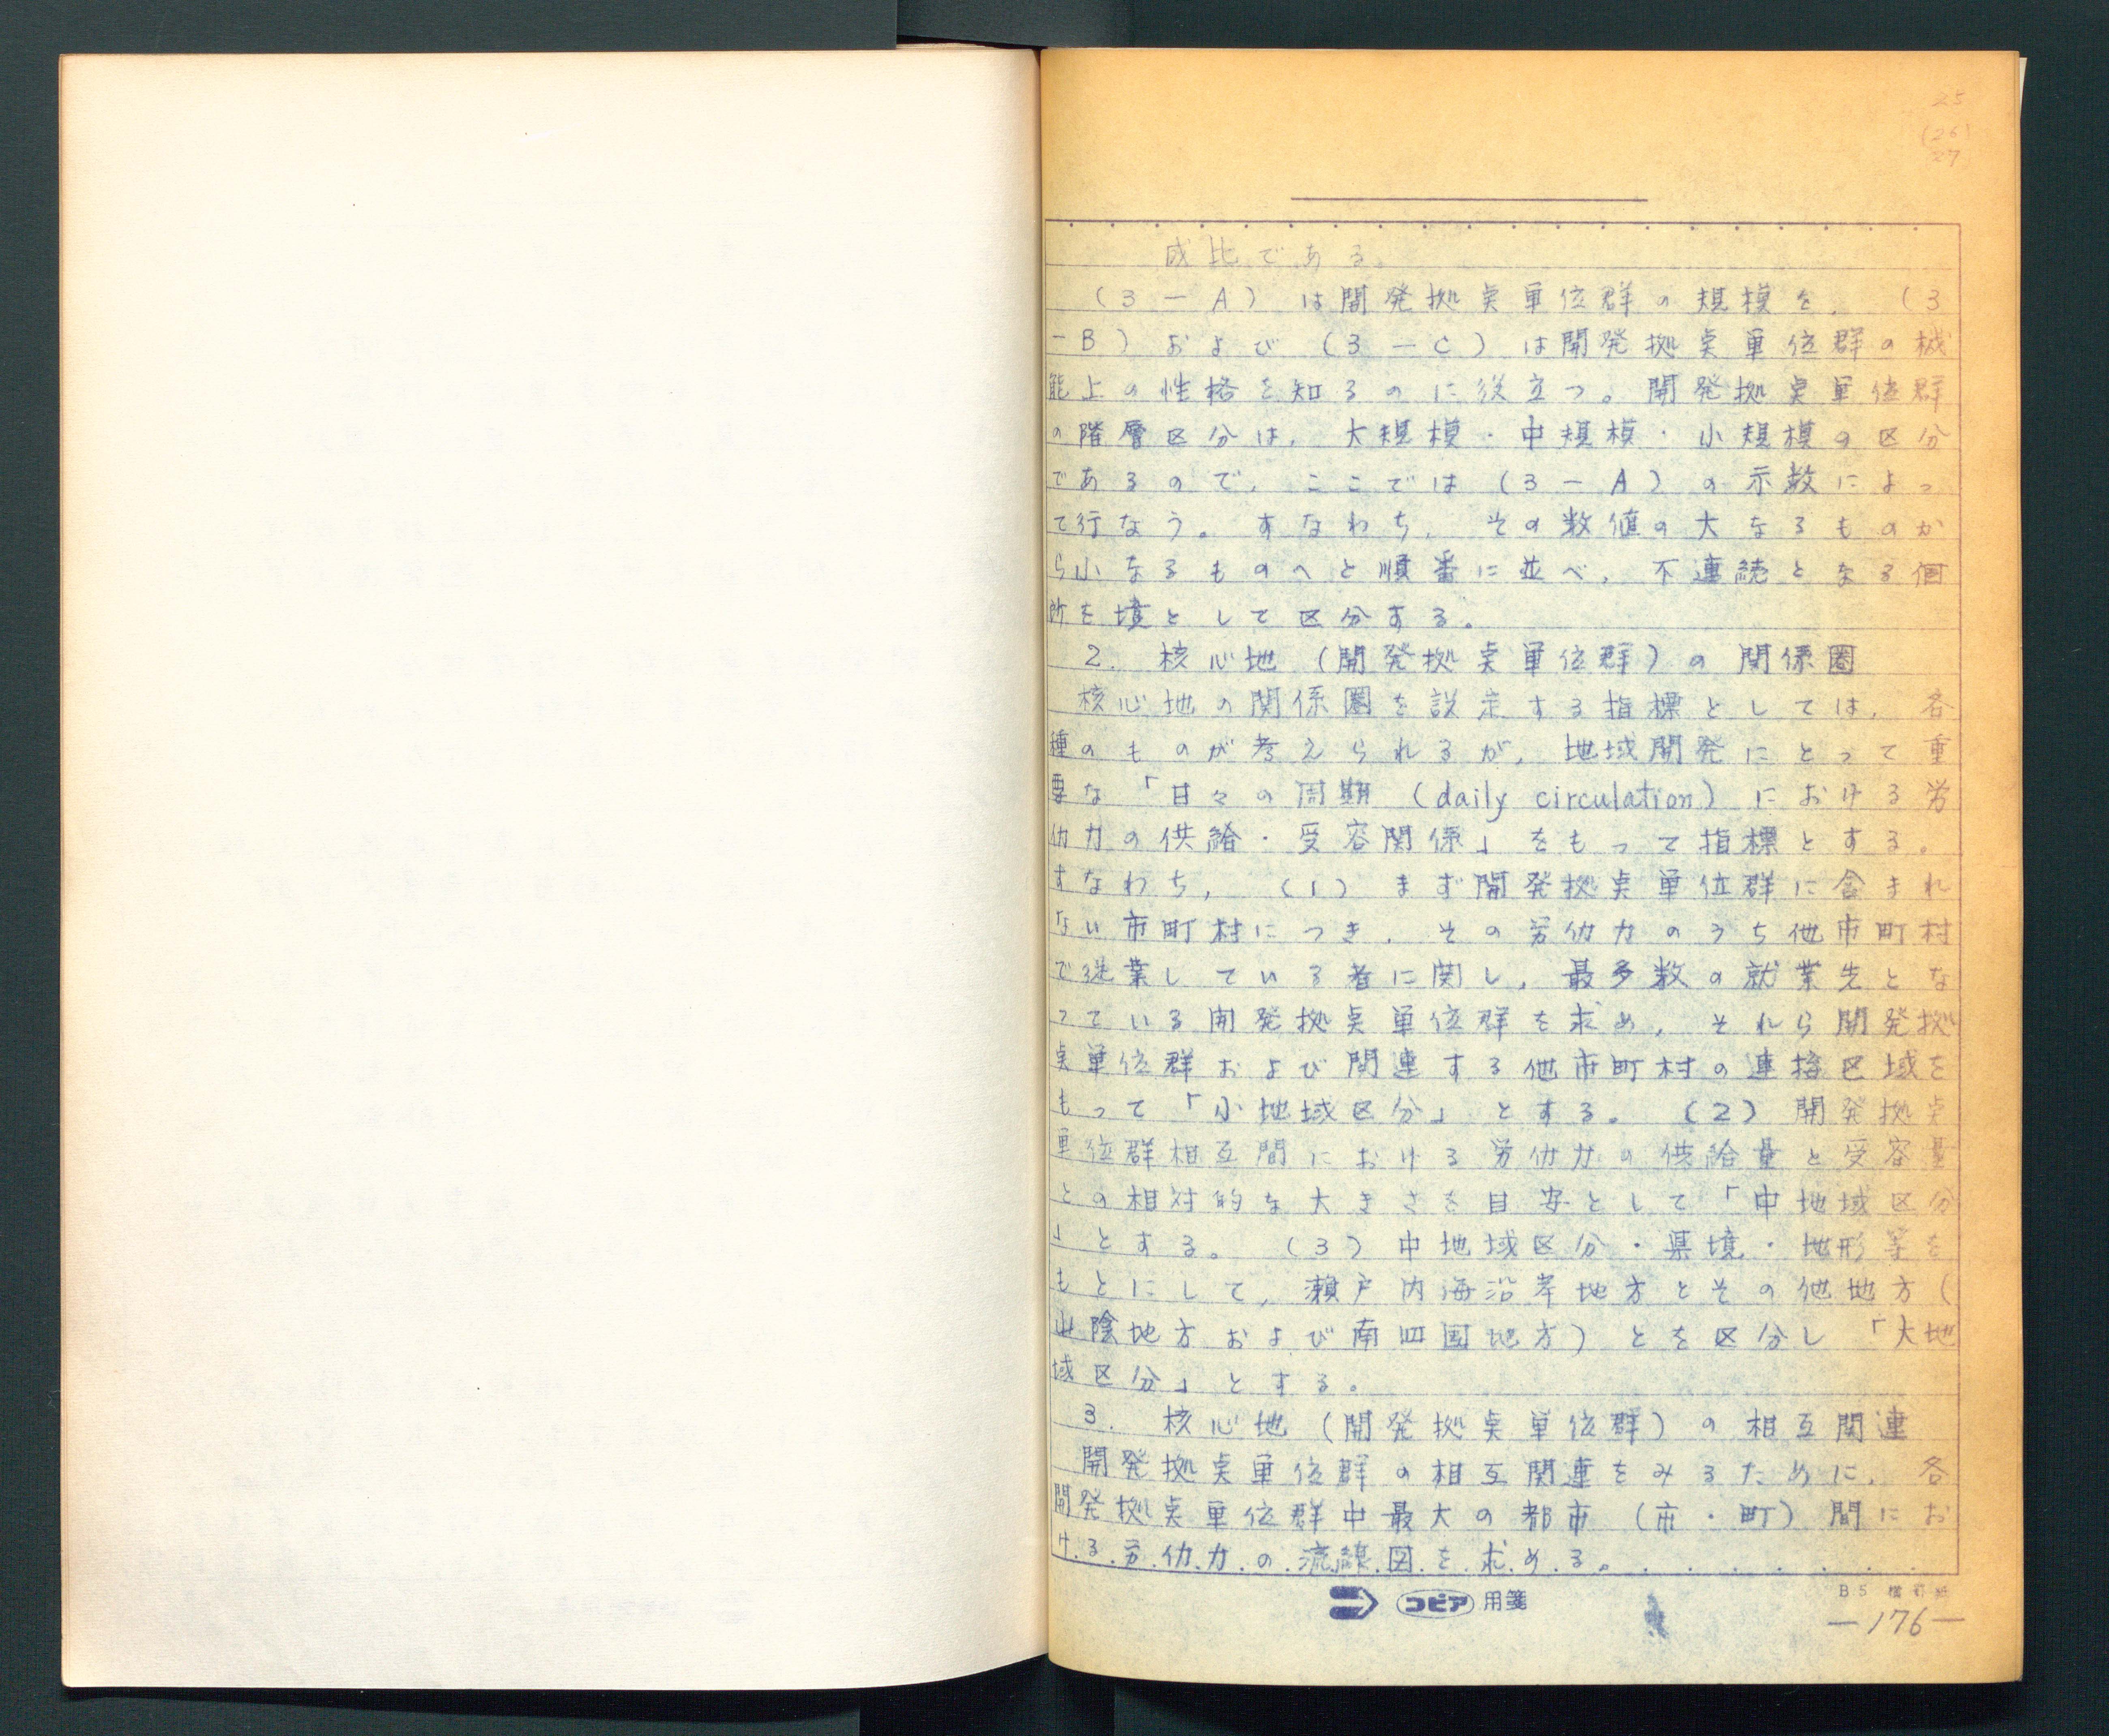 25
(26)
27
成比である。
(3-A)は開発拠点単位群の規模を,(3
-B)および(3-C)は開発拠点単位群の機
能上の性格を知るのに役立つ。開発拠点単位群
の階層区分は,大規模・中規模・小規模の区分
であるので,ここでは(3-A)の示数によっ
て行なう。すなわち,その数値の大なるものか
ら小なるものへと順番に並べ,不連続となる個
所を境として区分する。
2. 核心地(開発拠点単位群)の関係圏
核心地の関係圏を設定する指標としては,各
種のものが考えられるが,地域開発にとって重
要な「日々の周期(daily circulation)における労
仂力の供給・受容関係」をもって指標とする。
すなわち,(1)まず開発拠点単位群に含まれ
ない市町村につき,その労仂力のうち他市町村
で従業している者に関し,最多数の就業先とな
っている開発拠点単位群を求め,それら開発拠
点単位群および関連する他市町村の連担区域を
もって「小地域区分」とする。(2)開発拠点
単位群相互間における労仂力の供給量と受容量
との相対的な大きさを目安として「中地域区分
」とする。(3)中地域区分・県境・地形等を
もとにして,瀬戸内海沿岸地方とその他地方(
山陰地方および南四国地方)とを区分し「大地
域区分」とする。
3. 核心地(開発拠点単位群)の相互関連
開発拠点単位群の相互関連をみるために,各
開発拠点単位群中最大の都市(市・町)間にお
ける労仂力の流線図を求める。
コピア 用箋
B5 横罫紙
—176—